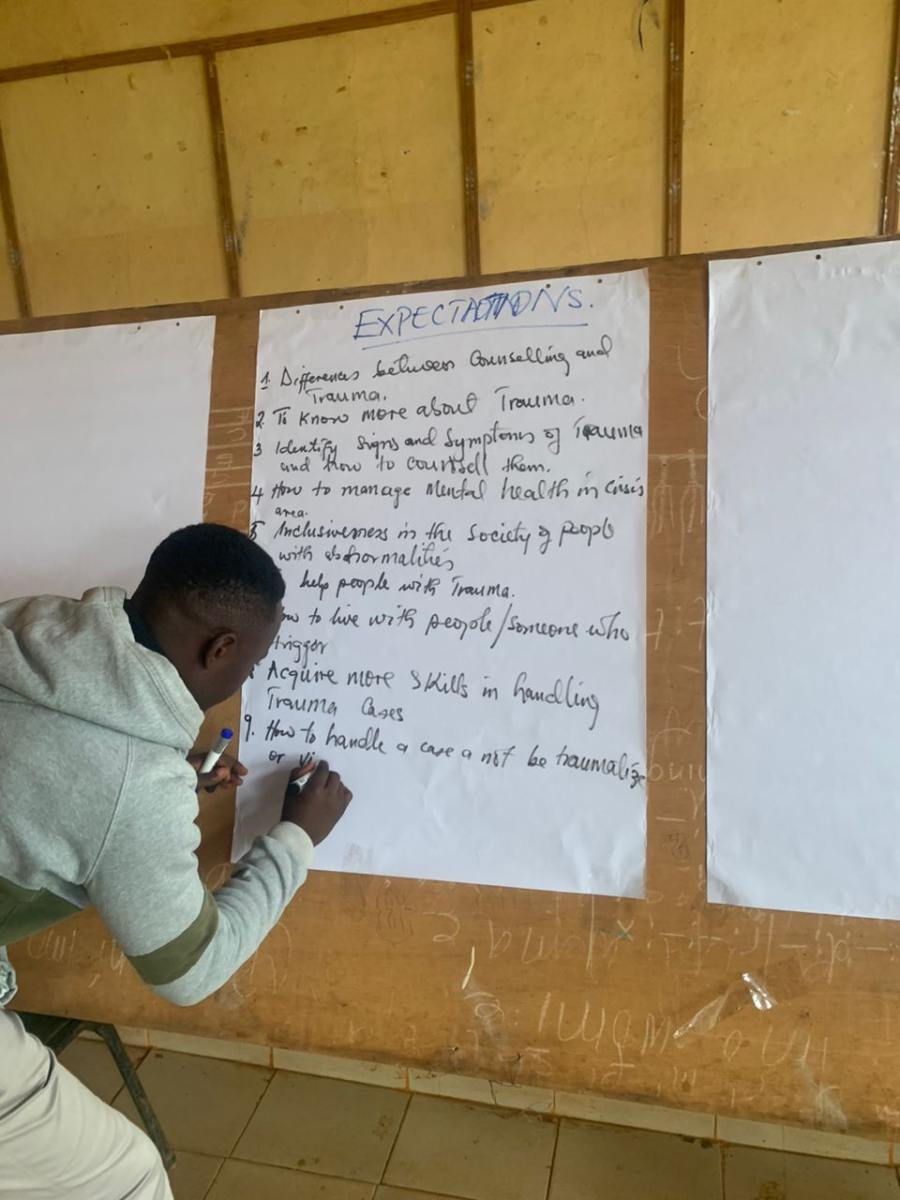 EXPECTATIONS.
1. Differences between Counselling and
Trauma.
2. To Know more about Trauma.
3 Identify Signs and Symptoms of Trauma
and how to counsell them.
4 How to manage Mental health in Crisis
area.
5 Inclusiveness in the Society of people
with abnormalities
help people with Trauma.
to live with people/someone who
trigger
Acquire more Skills in handling
Trauma Cases
9. How to handle a case a not be traumalize
or Vi